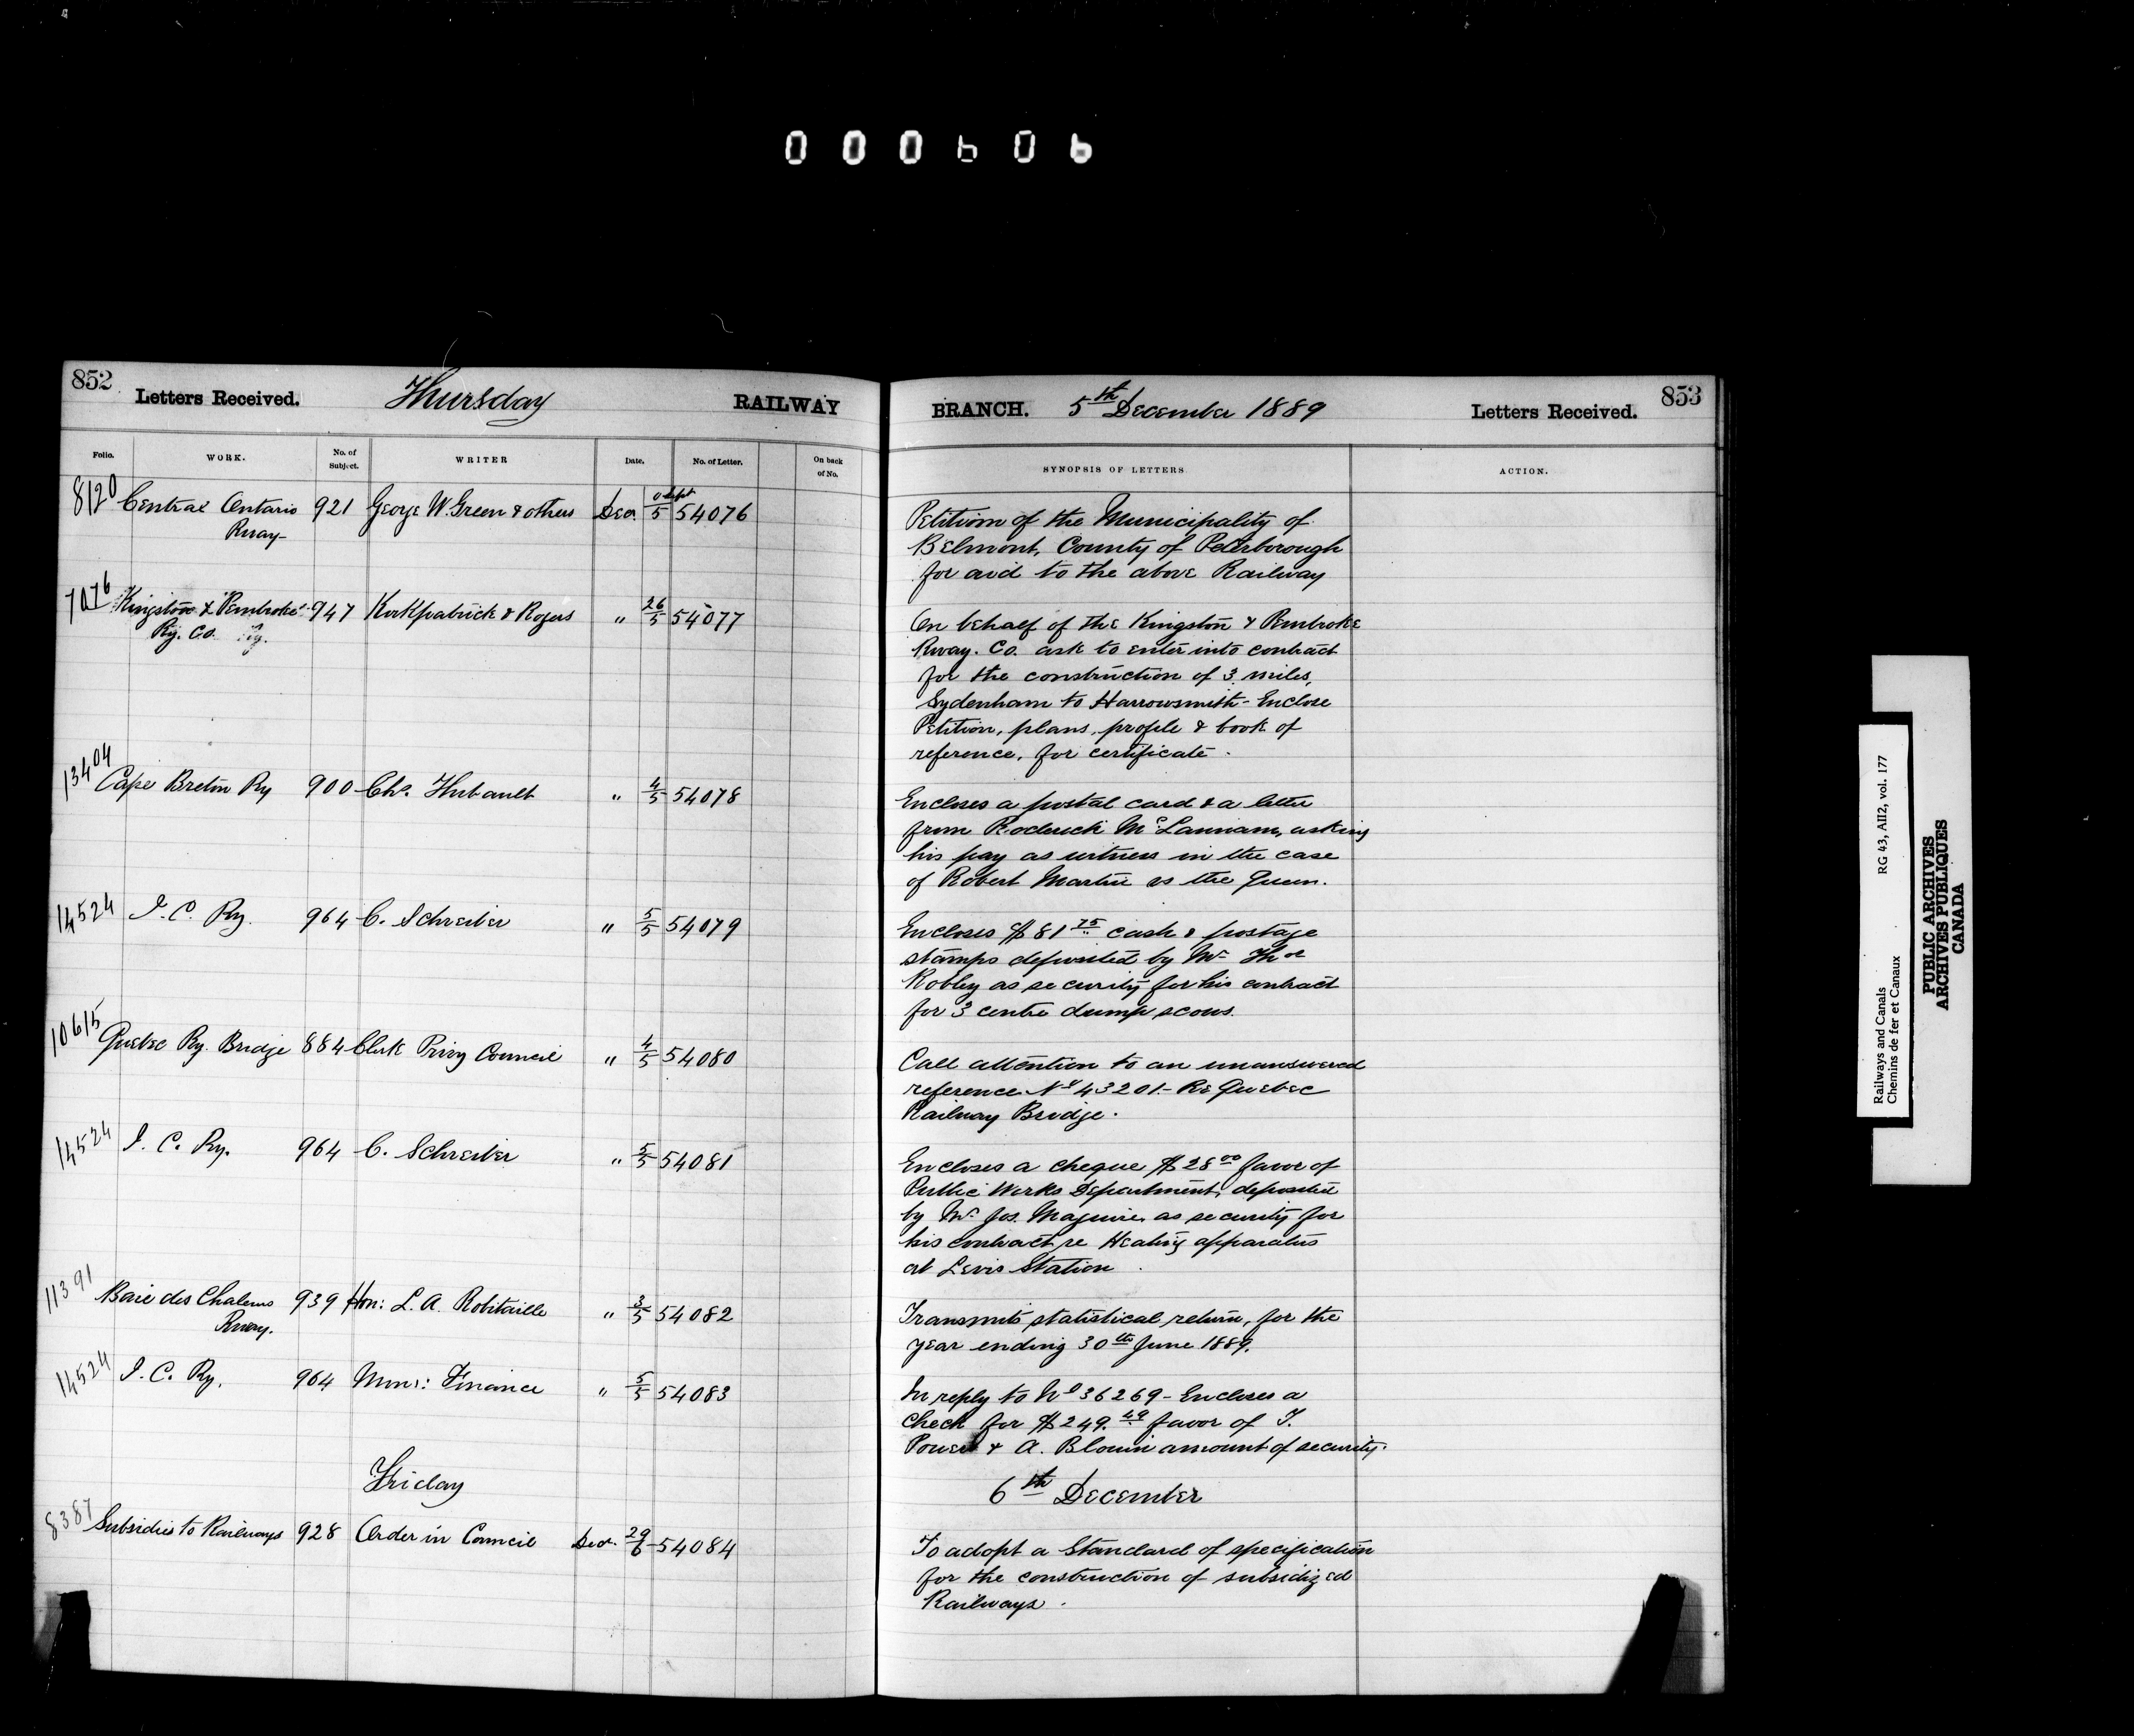 000606
852
Letters Received.
Thursday
RAILWAY
BRANCH.
5th December 1889
Letters Received.
853
Folio.
WORK.
No. of Subject.
WRITER
Date.
No. of Letter.
On back of No.
SYNOPSIS OF LETTERS
ACTION.
8120 Central Ontario 921 George W. Green & others Dec. 0 Sept 5 54076
Rway
Petition of the Municipality of
Belmont, County of Peterborough
for aid to the above Railway
7076 Kingston & Pembroke 947 Kirkpatrick & Rogers " 26/5 54077
Ry. Co.
On behalf of the Kingston & Pembroke
Rway. Co. ask to enter into contract
for the construction of 3 miles,
Sydenham to Harrowsmith - Enclose
Petition, plans, profile & book of
reference, for certificate.
13404 Cape Breton Ry 900 Chs. Thibault " 4/5 54078
Encloses a postal card & a letter
from Roderick McLannam, asking
his pay as witness in the case
of Robert Martin vs the Queen.
14524 I. C. Ry. 964 C. Schreiber " 5/5 54079
Encloses $81.75 cash & postage
stamps deposited by Mr. Thos
Robley as security for his contract
for 3 centre dump scows.
10615 Quebec Ry. Bridge 884 Clerk Privy Council " 4/5 54080
Call attention to an unanswered
reference No 43201 - Re Quebec
Railway Bridge.
14524 I. C. Ry. 964 C. Schreiber " 5/5 54081
Encloses a cheque $28.00 favor of
Public Works Department, deposited
by Mr. Jos. Maguire as security for
his contract re Heating apparatus
at Levis Station.
11391 Baie des Chaleurs 939 Hon: L. A. Robitaille " 3/5 54082
Rway.
Transmits statistical return, for the
year ending 30th June 1889.
14524 I. C. Ry. 964 Mins: Finance " 5/5 54083
In reply to No 36269 - Encloses a
check for $249.49 favor of T.
Power & A. Blouin amount of security.
Friday
6th December
8387 Subsidies to Railways 928 Order in Council Dec. 29/6 54084
To adopt a Standard of specification
for the construction of subsidized
Railways.
Railways and Canals RG 43, AII2, vol. 177
Chemins de fer et Canaux
PUBLIC ARCHIVES
ARCHIVES PUBLIQUES
CANADA